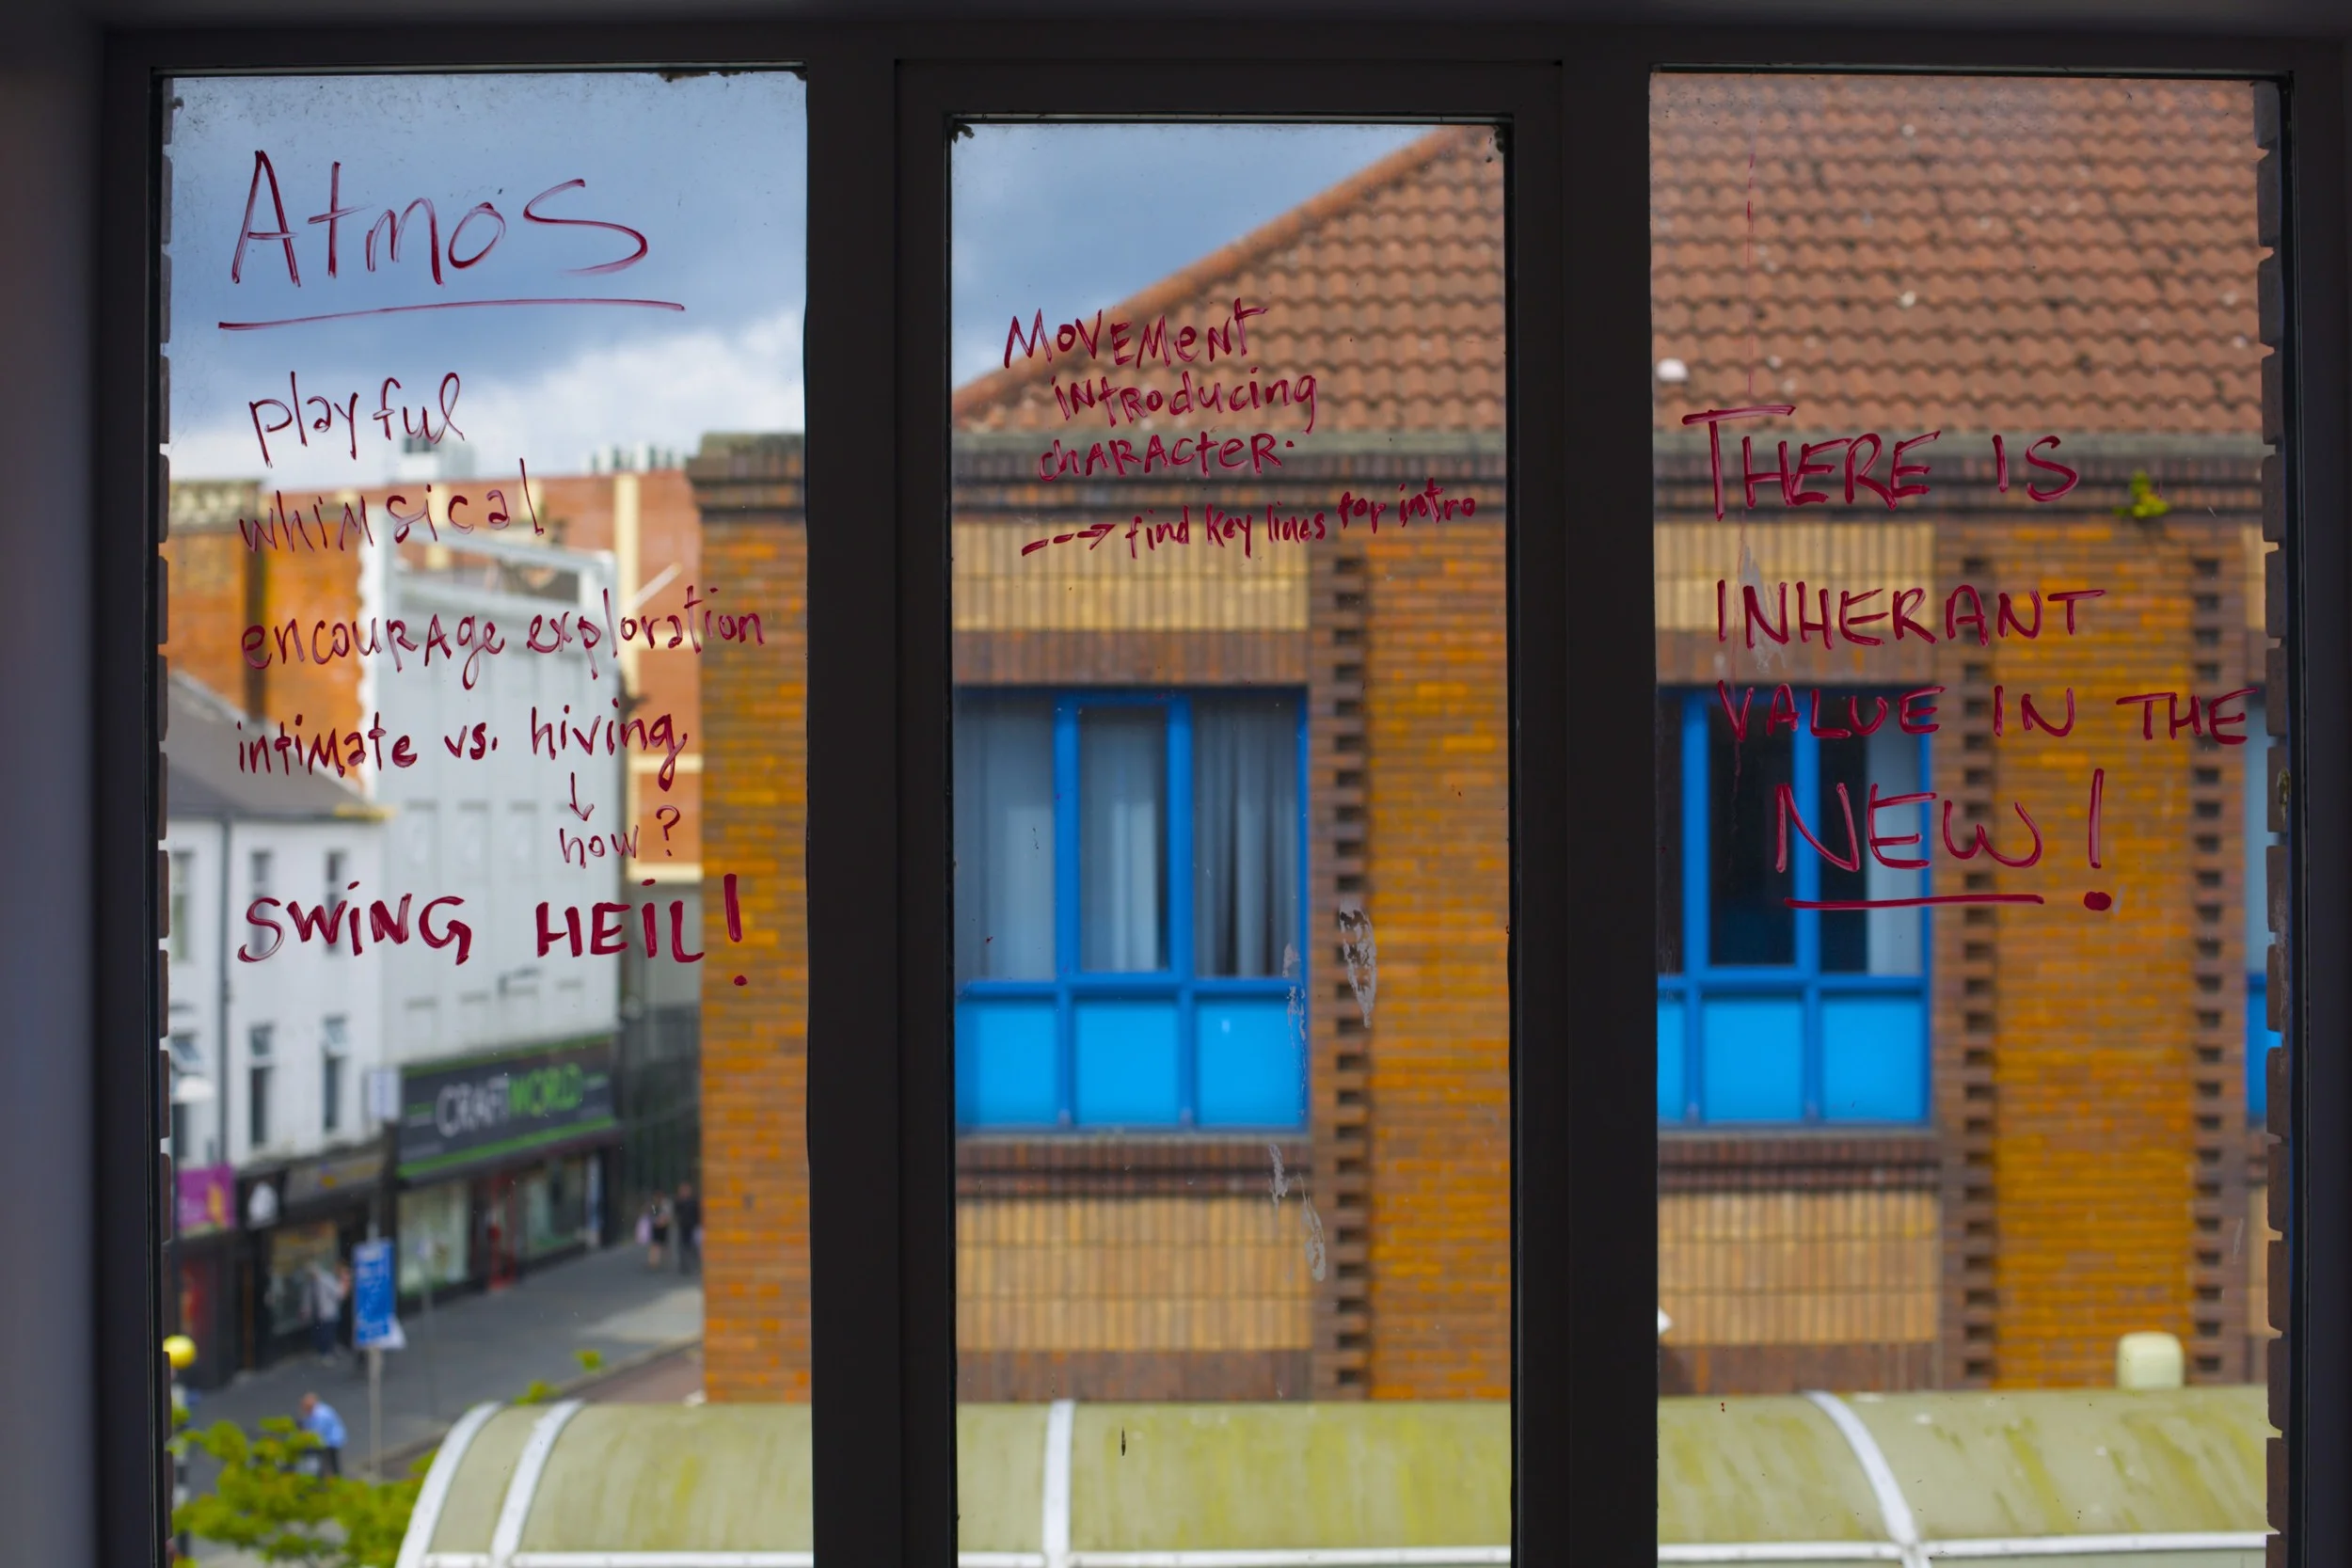 Atmos
playful
whimsical
encourage exploration
intimate vs. hiving
↓
how?
SWING HEIL!
MOVEMENT
INTRODucing
CHARACTER.
---> find key lines for intro
THERE IS
INHERANT
VALUE IN THE
NEW!
CRAFTWORLD